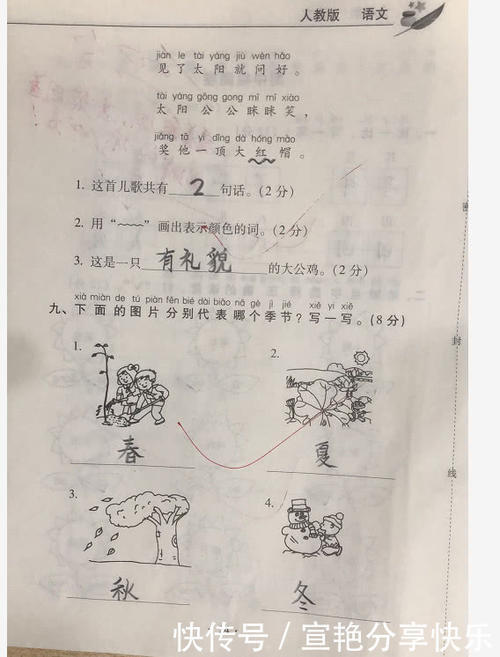 人教版 语文
jiàn le tài yáng jiù wèn hǎo
见了太阳就问好。
tài yáng gōng gong mī mī xiào
太阳公公眯眯笑,
jiǎng tā yì dǐng dà hóng mào
奖他一顶大红帽。
1. 这首儿歌共有 2 句话。(2分)
2. 用“﹏﹏”画出表示颜色的词。(2分)
3. 这是一只 有礼貌 的大公鸡。(2分)
xià miàn de tú piàn fēn bié dài biǎo nǎ gè jì jié xiě yi xiě
九、下面的图片分别代表哪个季节?写一写。(8分)
1. 2.
春 夏
3. 4.
秋 冬
密
封
线
快传号 / 宣艳分享快乐